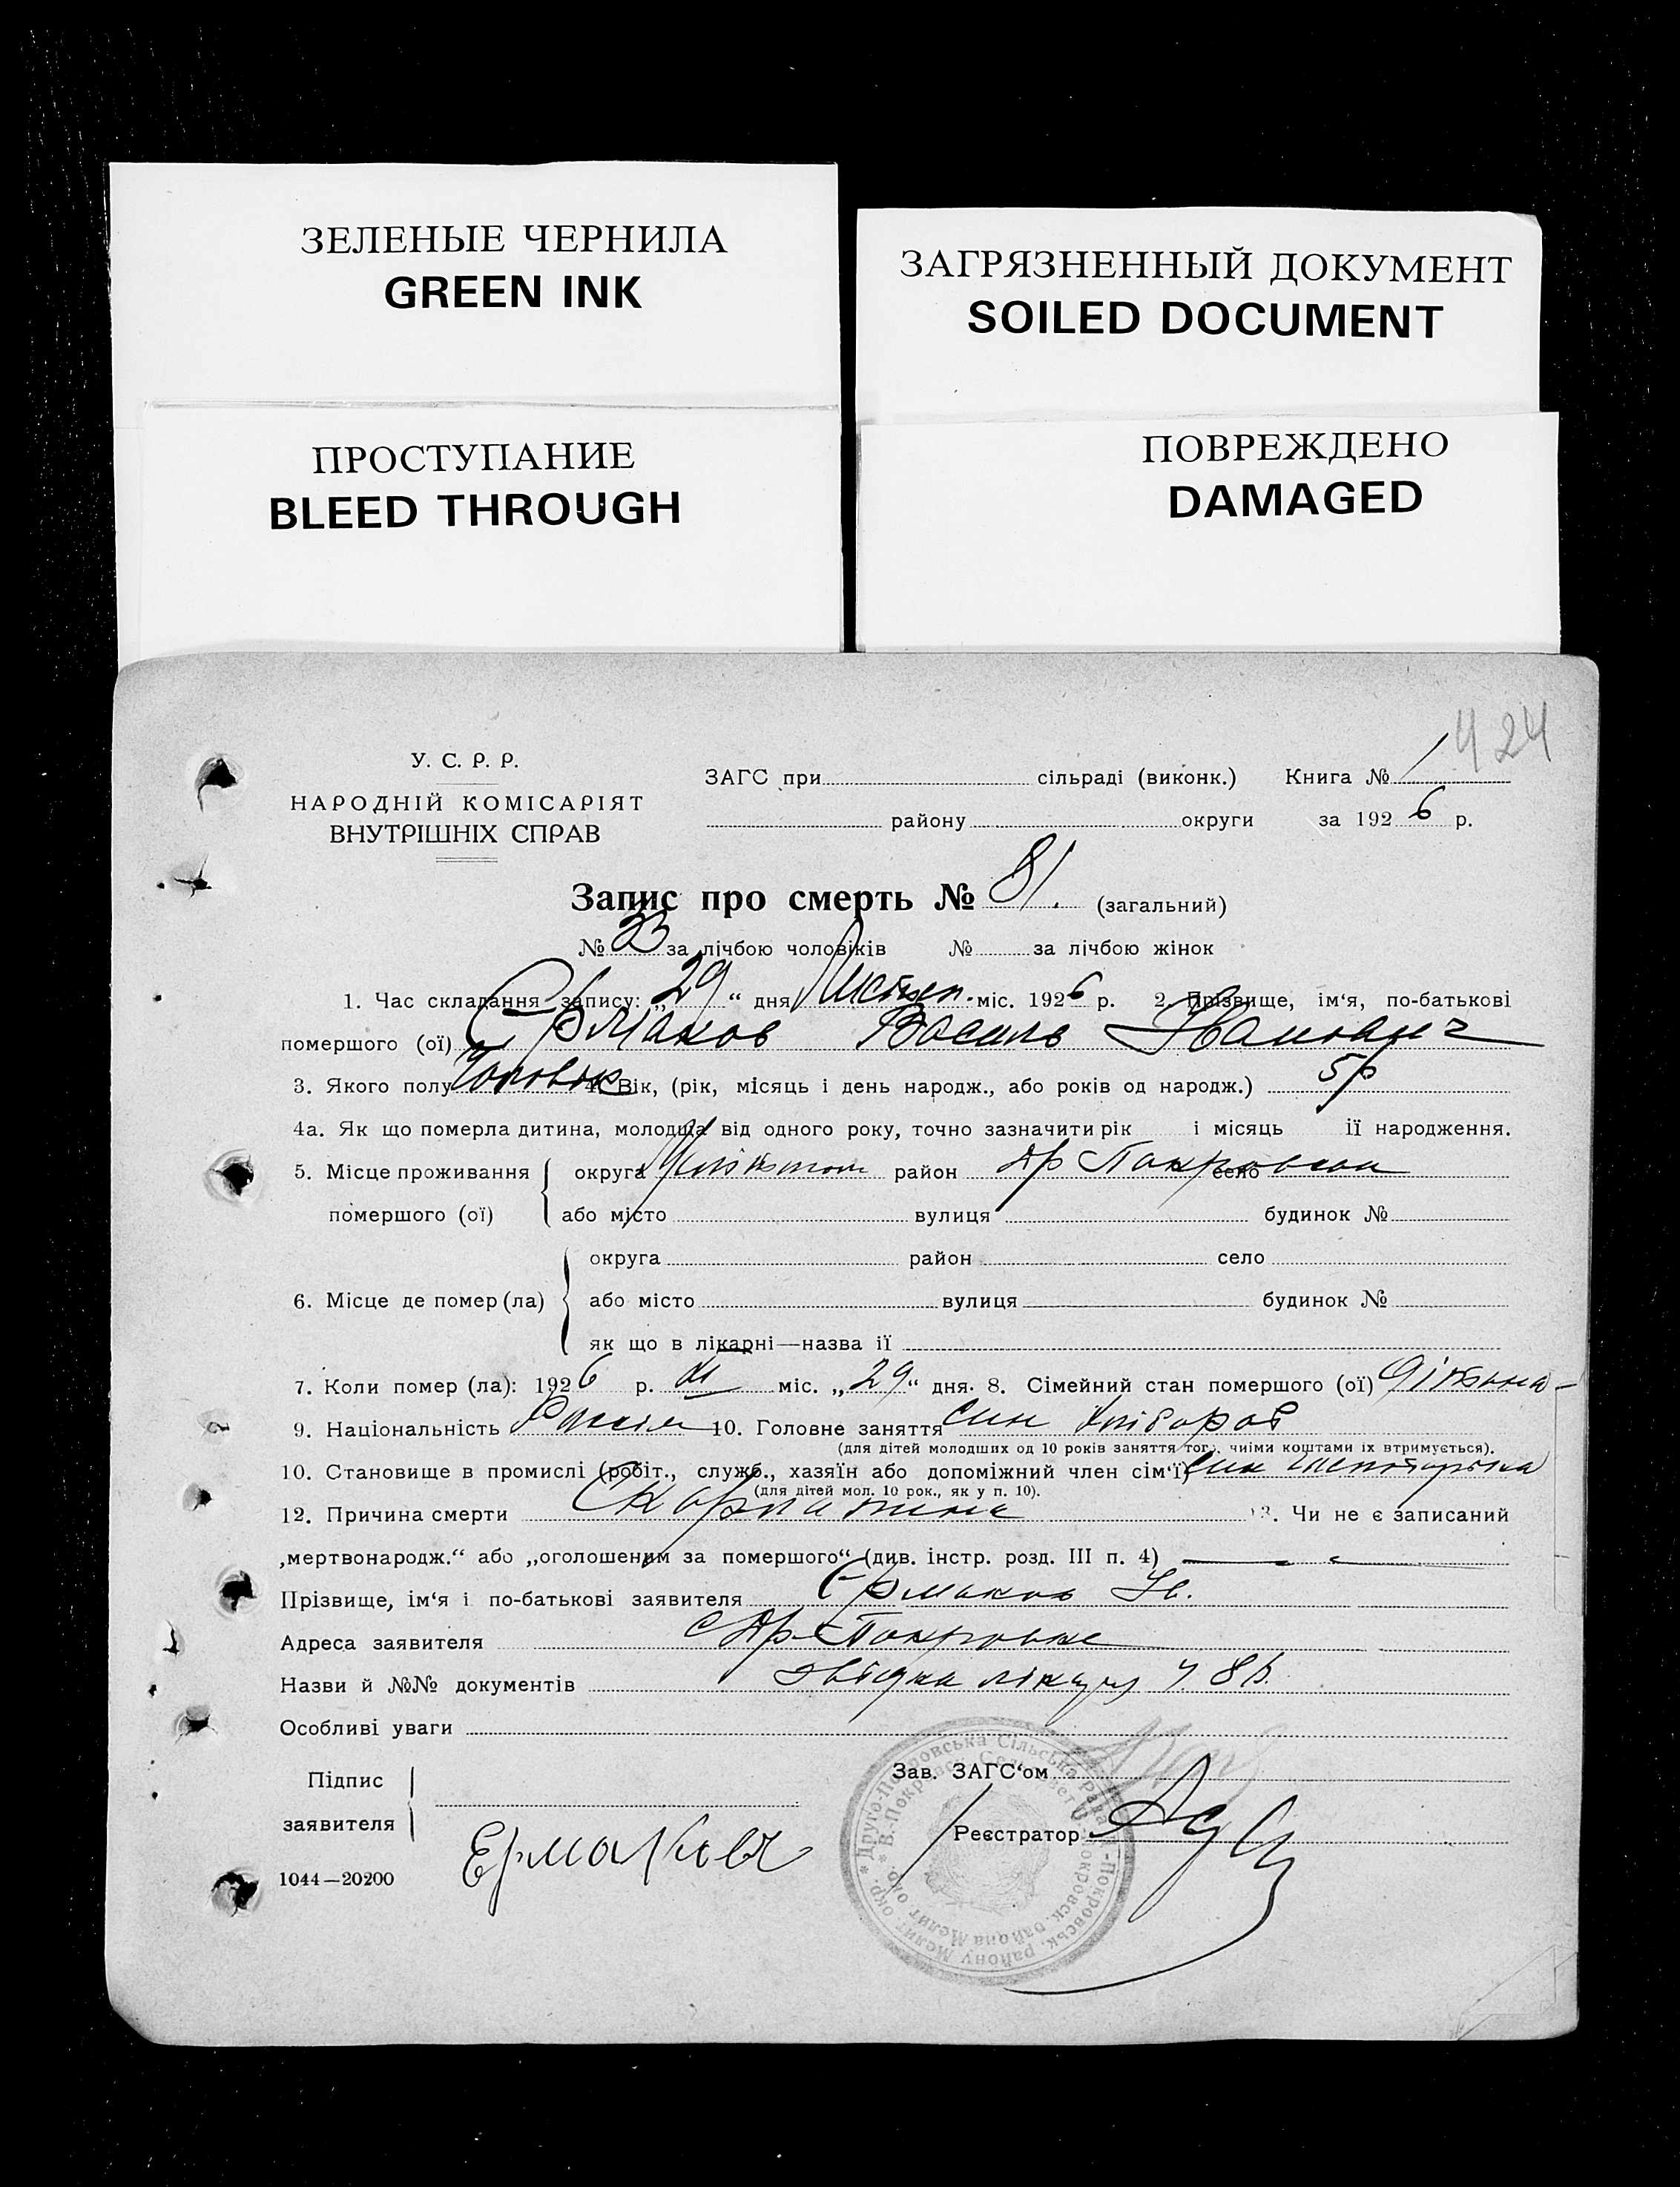 ЗЕЛЕНЫЕ ЧЕРНИЛА
GREEN INK
ЗАГРЯЗНЕННЫЙ ДОКУМЕНТ
SOILED DOCUMENT
ПРОСТУПАНИЕ
BLEED THROUGH
ПОВРЕЖДЕНО
DAMAGED
424
У. С. Р. Р.
НАРОДНІЙ КОМІСАРІЯТ
ВНУТРІШНІХ СПРАВ
ЗАГС при сільраді (виконк.) Книга № 1
району округи за 1926 р.
Запис про смерть № 81. (загальний)
№ 33 за лічбою чоловіків № за лічбою жінок
1. Час складання запису: „29“ дня міс. 1926 р. 2. Прізвище, ім‘я, по-батькові
помершого (ої) Єрмаков Василь Іванович
3. Якого полу Чоловік 4. Вік, (рік, місяць і день народж., або років од народж.) 5 р
4а. Як що померла дитина, молодша від одного року, точно зазначити рік і місяць її народження.
5. Місце проживання округа район Др Покровка село
помершого (ої) або місто вулиця будинок №
округа район село
6. Місце де помер (ла) або місто вулиця будинок №
як що в лікарні—назва її
7. Коли помер (ла): 1926 р. XI міс. „29“ дня. 8. Сімейний стан помершого (ої) дітина
9. Національність 10. Головне заняття син хлібороб
(для дітей молодших од 10 років заняття того, чиїми коштами їх втримується).
10. Становище в промислі (робіт., служб., хазяїн або допоміжний член сім‘ї) син
(для дітей мол. 10 рок., як у п. 10).
12. Причина смерти Скарлатина 13. Чи не є записаний
„мертвонародж.“ або „оголошеним за помершого“ (див. інстр. розд. III п. 4)
Прізвище, ім‘я і по-батькові заявителя Єрмаков Ів.
Адреса заявителя с Др-Покровка
Назви й №№ документів
Особливі уваги
Підпис
заявителя
Ермаковъ
Зав. ЗАГС‘ом
Реєстратор
Друго-Покровська Сільська Рада
1044—20200